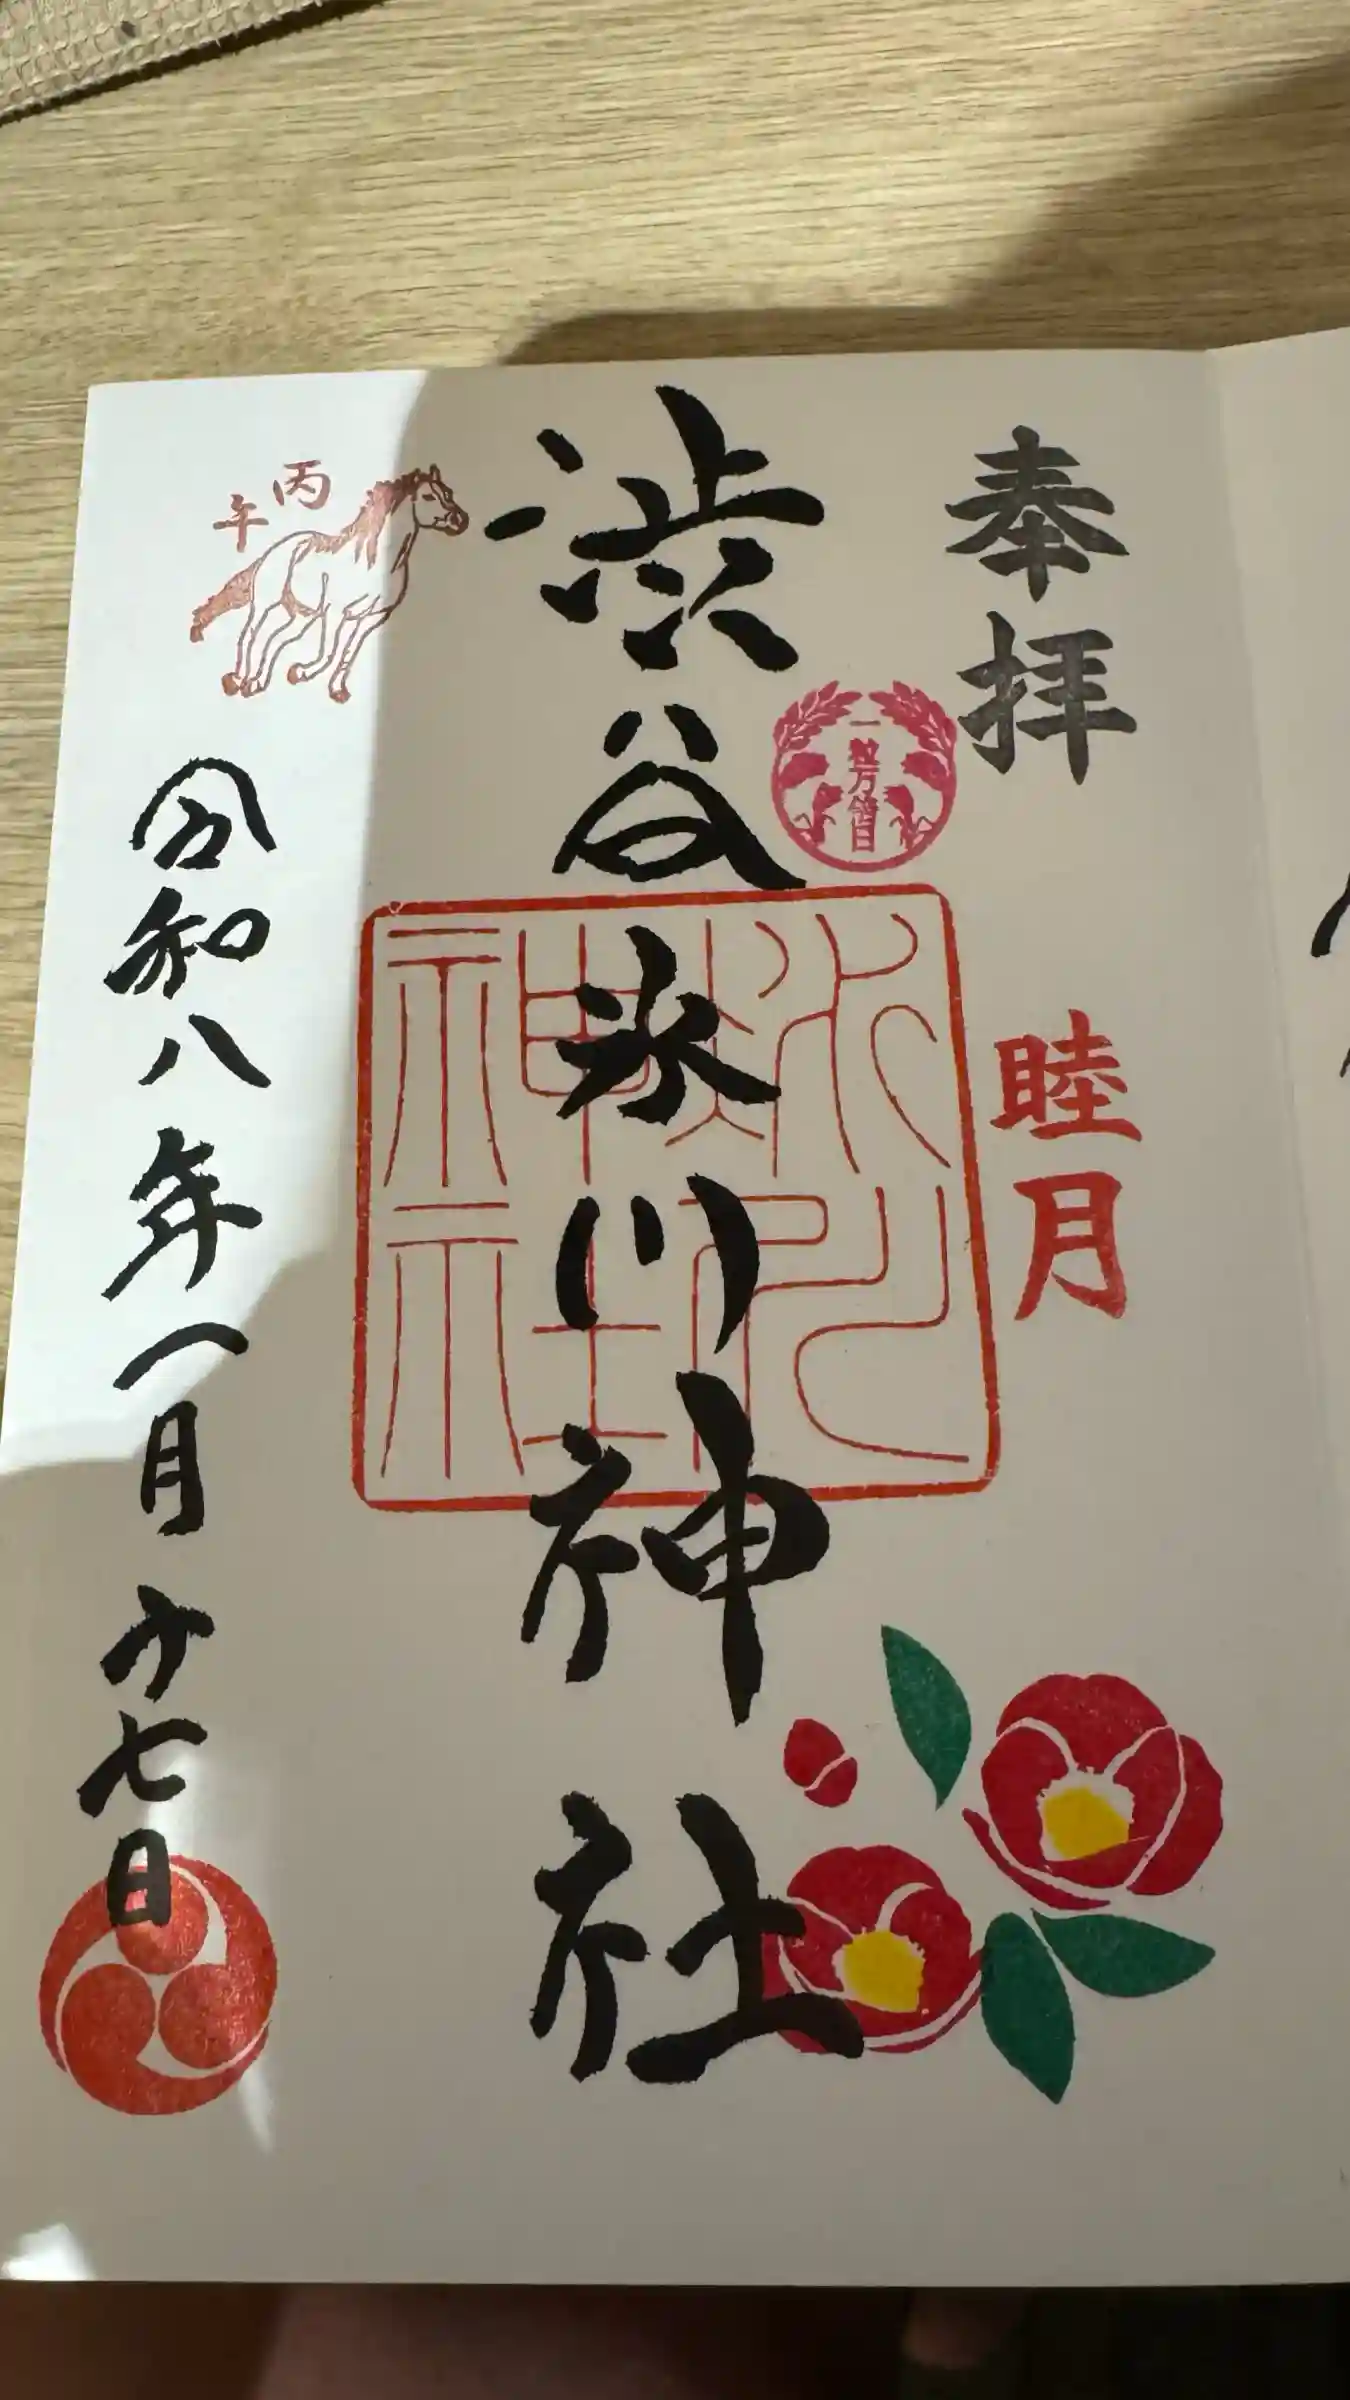 奉拝
睦月
一粒万倍日
渋谷氷川神社
氷川神社
丙午
令和八年一月十七日